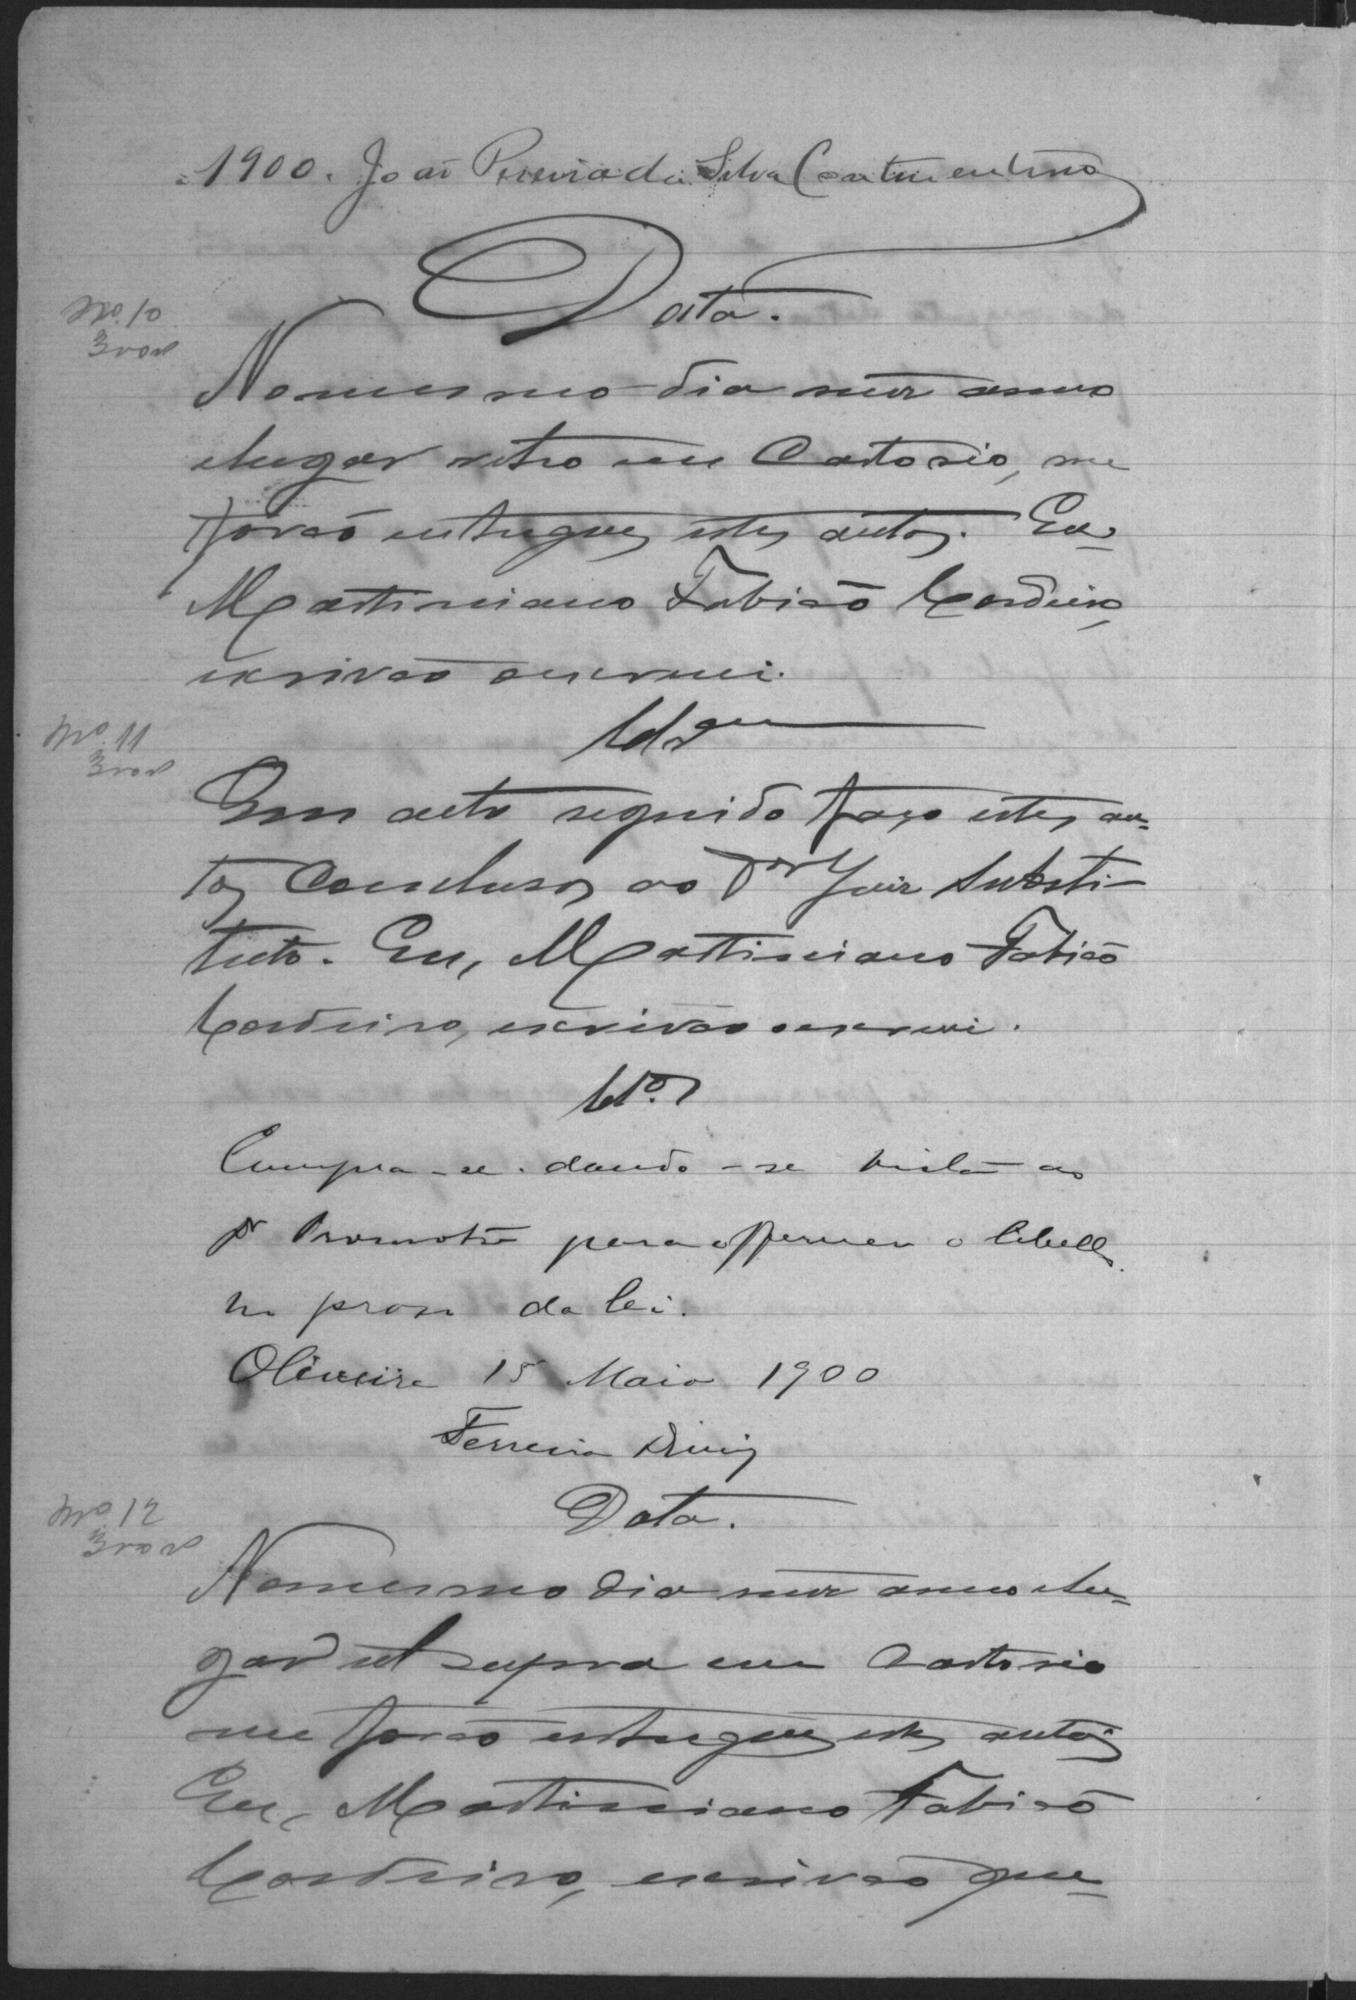 1900. João Pereira da Silva Continentino
Data.
No. 10
No mesmo dia mez anno
e lugar retro em Cartorio, me
forão entregues estes autos. Eu
Martiniano Fabião Cordeiro,
escrivão o escrevi.
No. 11
Clsam
Em acto seguido faço estes au=
tos Conclusos ao Dor Juiz Substi-
tuto. Eu, Martiniano Fabião
Cordeiro, escrivão o escrevi.
Clos
Cumpra-se. dando-se vista ao
Dr Promotor para offerecer o libello
no praso da lei.
Oliveira 15 Maio 1900
Ferreira Diniz
Data.
No. 12
No mesmo dia mez anno e lu=
gar ut supra em Cartorio
me forão entregues estes autos
Eu, Martiniano Fabião
Cordeiro, escrivão que